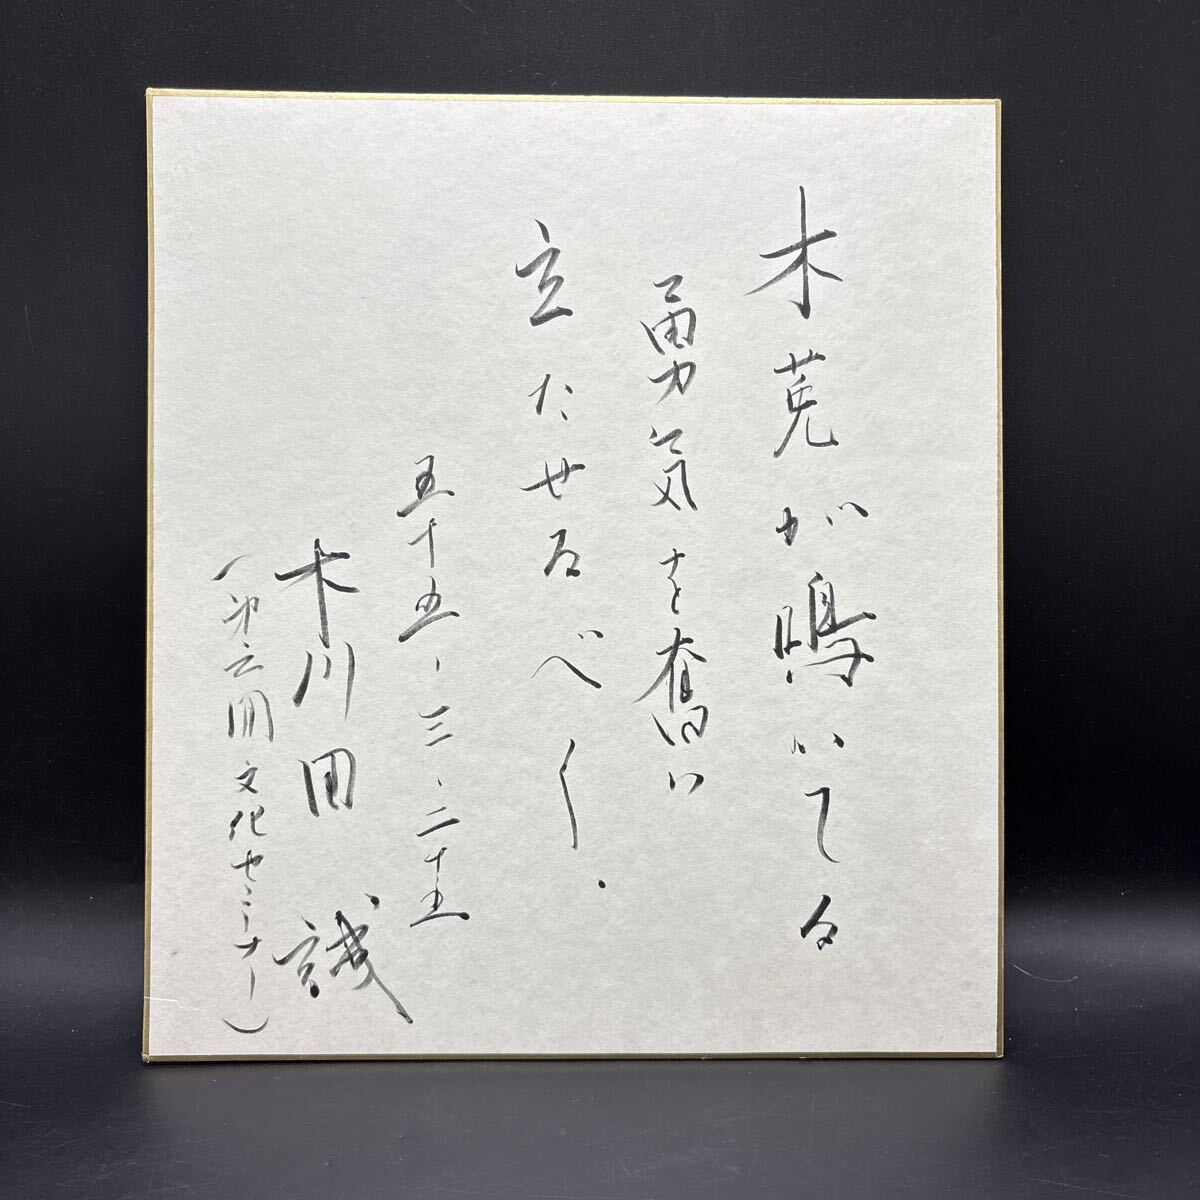 木菟が鳴いてる
勇気を奮い
立たせるべく.
五十五、三、二十五
木川田 誠
(第六回文化セミナー)